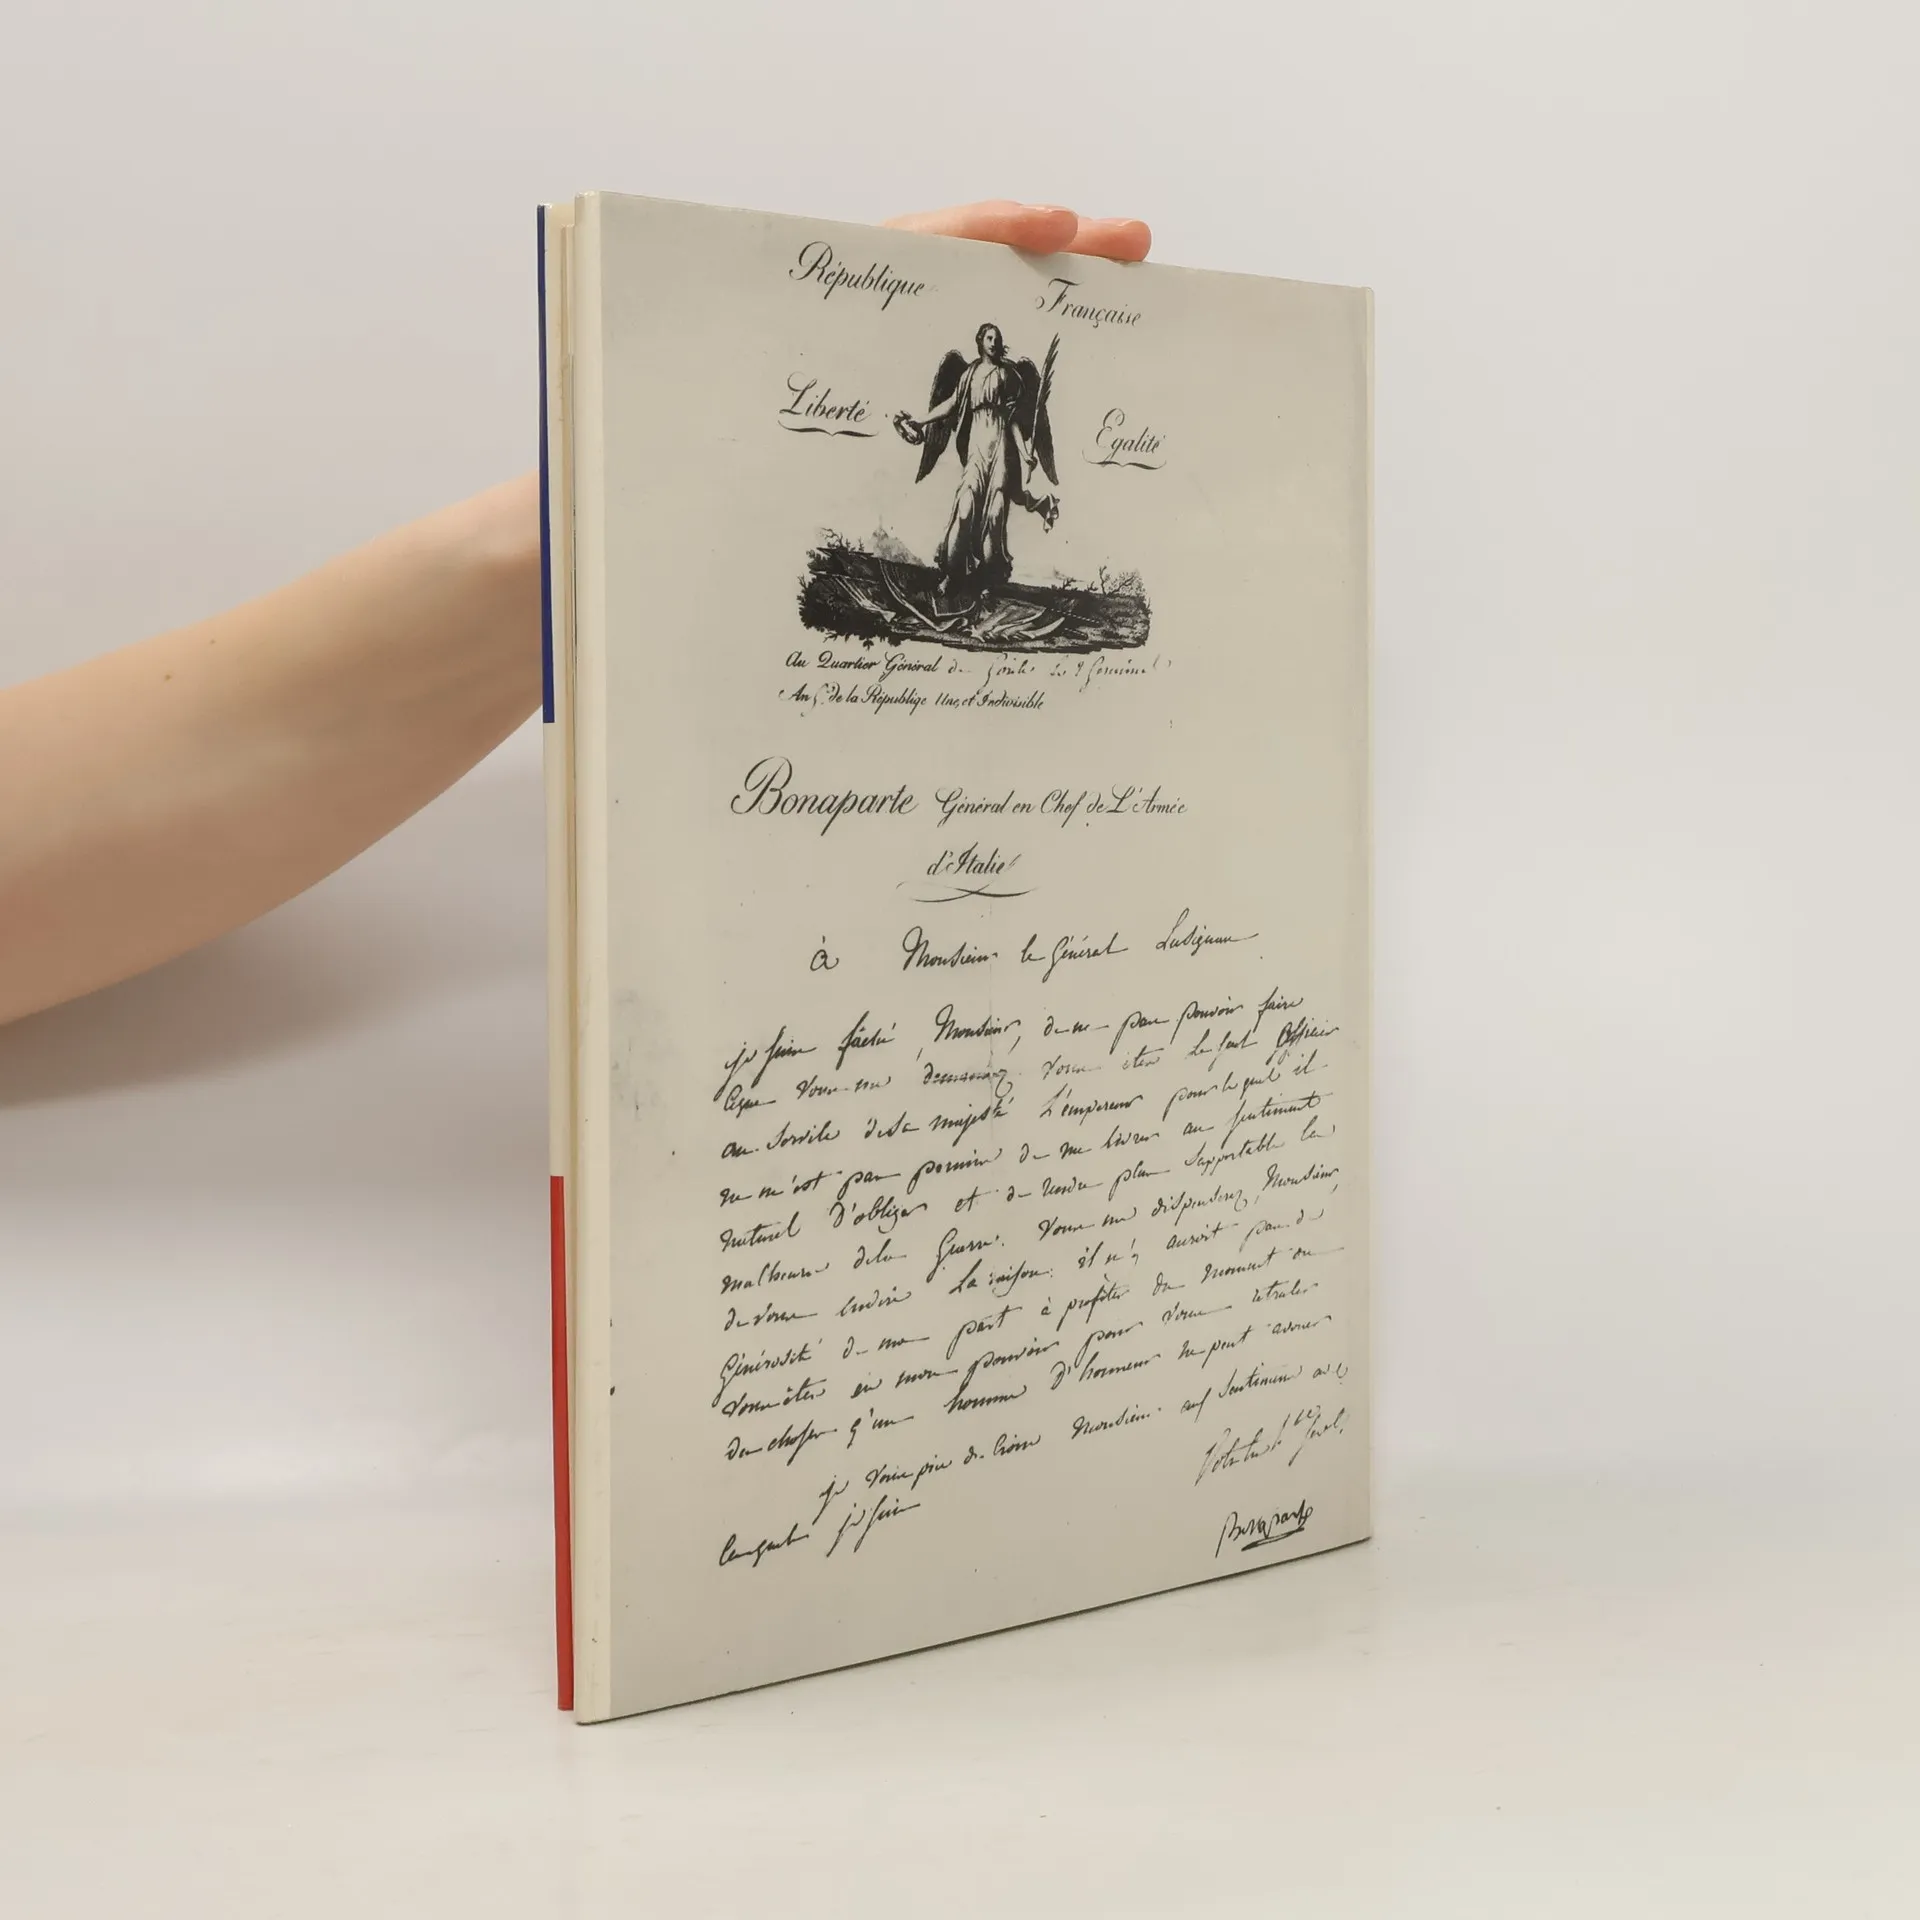 République Française
Liberté Egalité
Au Quartier Général de
An de la Républiqe Une, et Indivisible
Bonaparte Général en Chef de L'Armée
d'Italie
à Monsieur le général Lusignan
je suis fâché, Monsieur, de ne pas pouvoir faire
ceque vous me demandez. vous etes le seul officier
au service de sa majesté L'empereur pour le quel il
ne m'est pas permis de me livrer au sentiment
naturel d'obliger et de rendre plus supportable les
malheurs dela guerre. vous me dispenserez, Monsieur,
de vous en dire La raison: il n'y auroit pas de
Générosité de ma part à profiter du moment ou
vous êtes en mon pouvoir pour vous
des choses q'un homme d'honneur ne peut avouer
je vous prie de croire Monsieur aux sentimens avec
lesquels je suis
Bonaparte